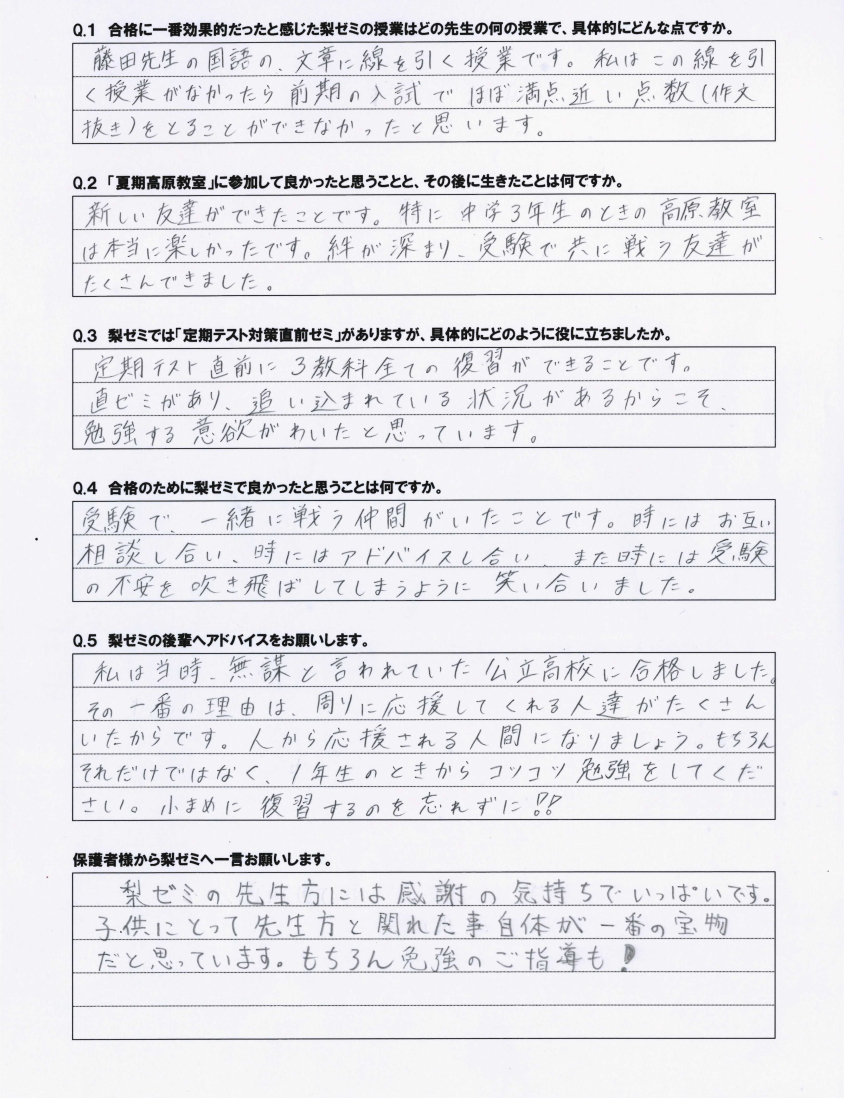 Q.1 合格に一番効果的だったと感じた梨ゼミの授業はどの先生の何の授業で、具体的にどんな点ですか。
藤田先生の国語の、文章に線を引く授業です。私はこの線を引
く授業がなかったら前期の入試でほぼ満点近い点数(作文
抜き)をとることができなかったと思います。
Q.2 「夏期高原教室」に参加して良かったと思うことと、その後に生きたことは何ですか。
新しい友達ができたことです。特に中学3年生のときの高原教室
は本当に楽しかったです。絆が深まり、受験で共に戦う友達が
たくさんできました。
Q.3 梨ゼミでは「定期テスト対策直前ゼミ」がありますが、具体的にどのように役に立ちましたか。
定期テスト直前に3教科全ての復習ができることです。
直ゼミがあり、追い込まれている状況があるからこそ、
勉強する意欲がわいたと思っています。
Q.4 合格のために梨ゼミで良かったと思うことは何ですか。
受験で、一緒に戦う仲間がいたことです。時にはお互い
相談し合い、時にはアドバイスし合い、また時には受験
の不安を吹き飛ばしてしまうように笑い合いました。
Q.5 梨ゼミの後輩へアドバイスをお願いします。
私は当時、無謀と言われていた公立高校に合格しました。
その一番の理由は、周りに応援してくれる人達がたくさん
いたからです。人から応援される人間になりましょう。もちろん
それだけではなく、1年生のときからコツコツ勉強をしてくだ
さい。小まめに復習するのを忘れずに!!
保護者様から梨ゼミへ一言お願いします。
梨ゼミの先生方には感謝の気持ちでいっぱいです。
子供にとって先生方と関れた事自体が一番の宝物
だと思っています。もちろん勉強のご指導も!